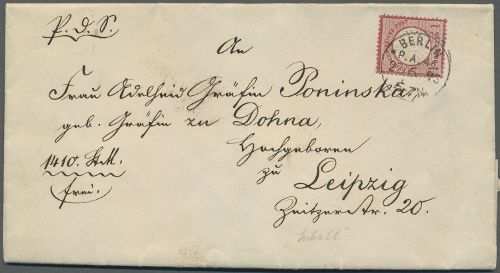 P. d. S.
An
Frau Adelheid Gräfin Poninska,
geb. Gräfin zu Dohna,
Hochgeboren
zu
Leipzig
Zeitzerstr. 20.
1410. St.M.
frei.
BERLIN
P.A.
"Inhalt"